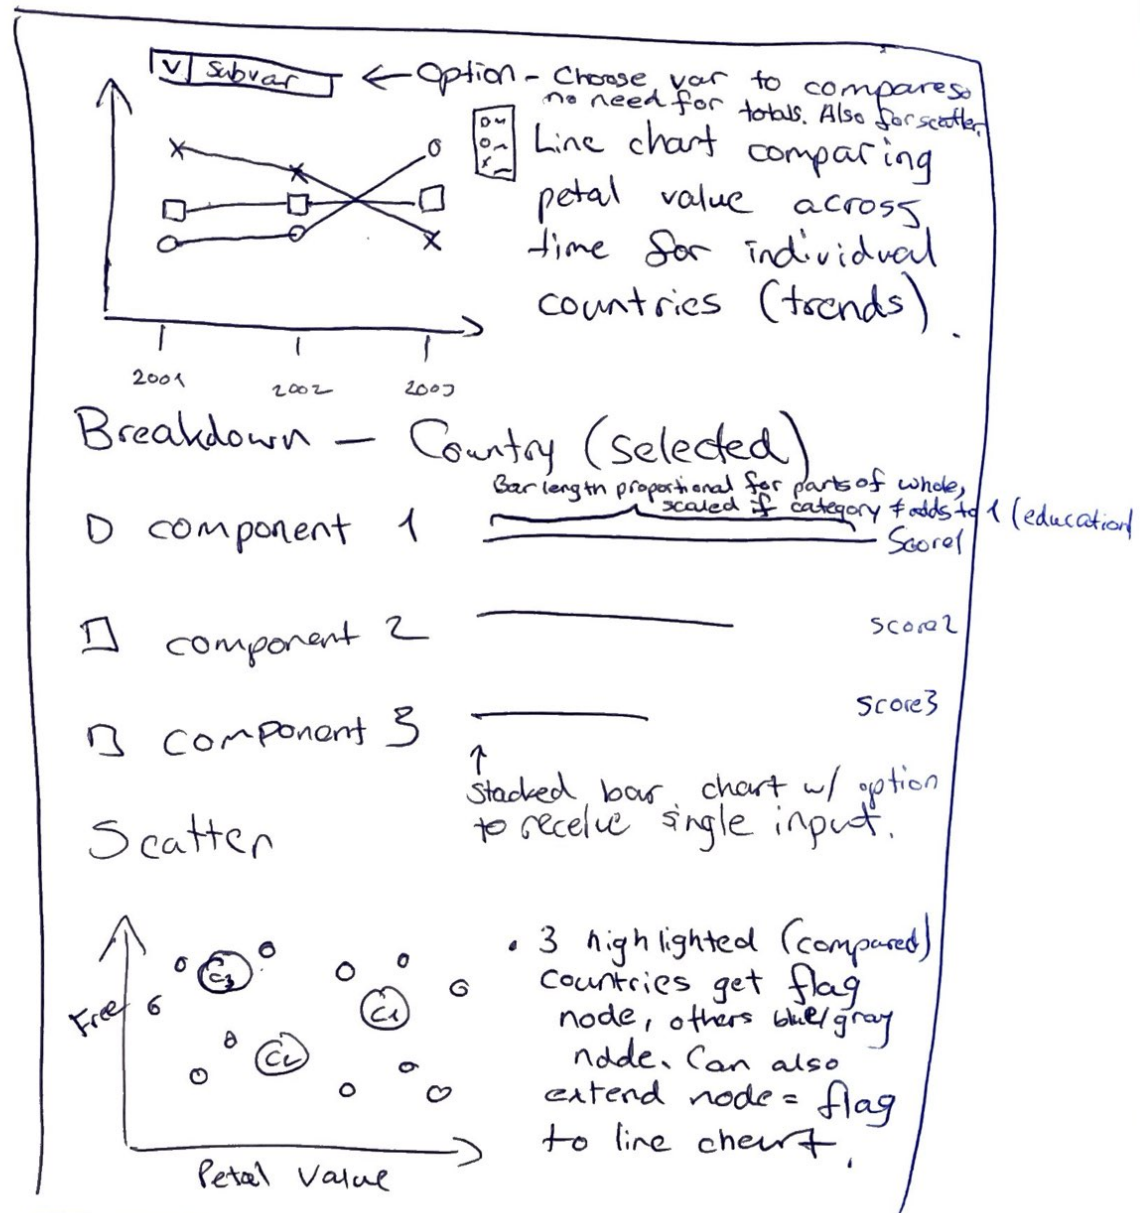 V Subvar ← Option - Choose var to compare so
no need for totals. Also for scatter
Line chart comparing
petal value across
time for individual
countries (trends).
2001 2002 2003
Breakdown — Country (selected)
Bar length proportional for parts of whole,
scaled if category ≠ adds to 1 (education
component 1 Score1
component 2 score2
component 3 score3
↑
Stacked bar chart w/ option
to receive single input.
Scatter
• 3 highlighted (compared)
countries get flag
node, others blue/gray
node. Can also
extend node = flag
to line chart.
C3
C1
C2
Free
Petal Value